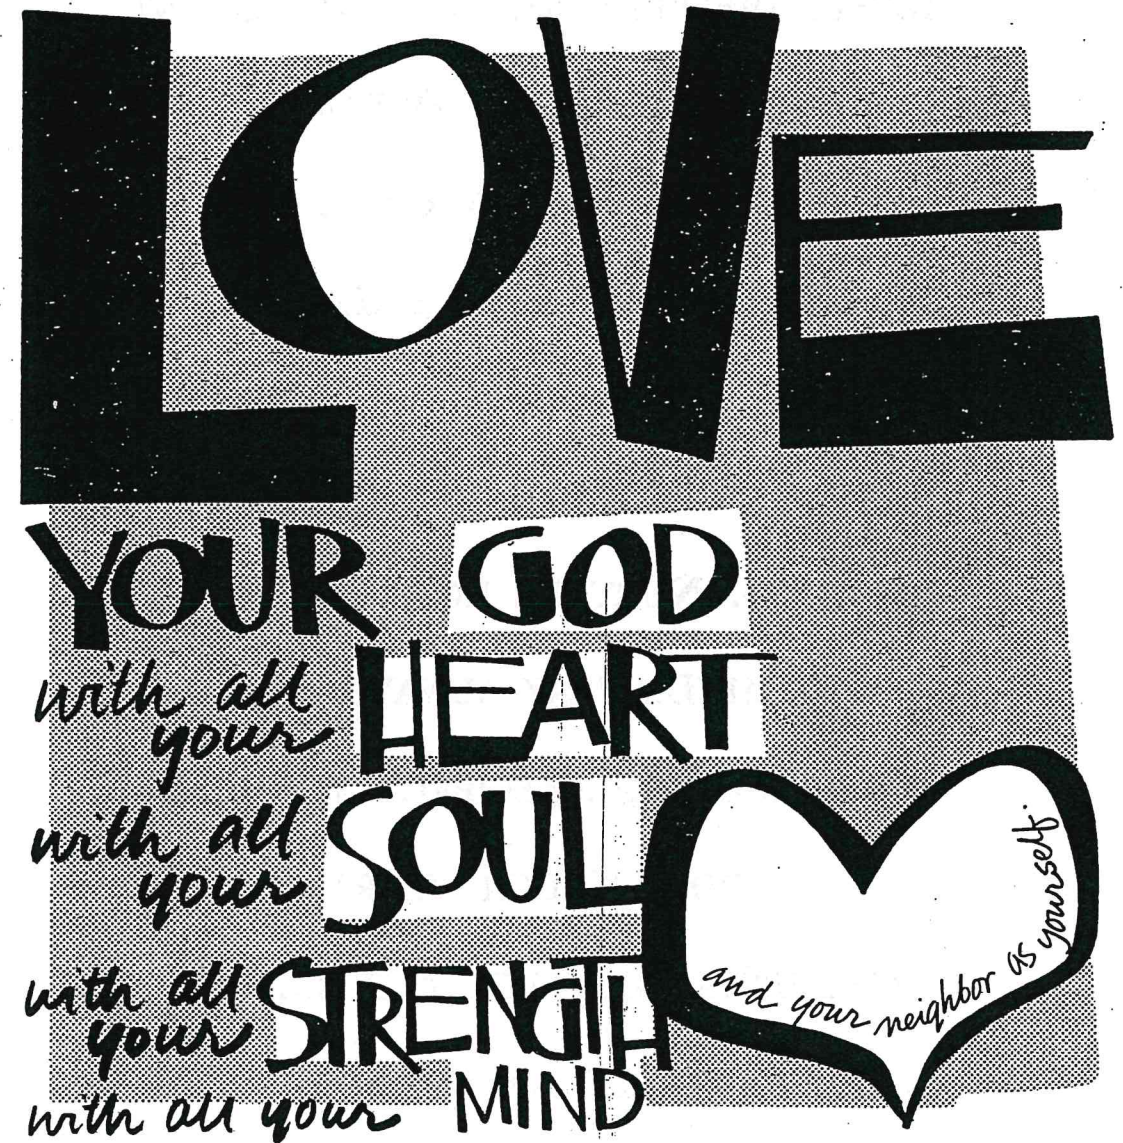 LOVE
YOUR GOD
with all your HEART
with all your SOUL
with all your STRENGTH
with all your MIND
and your neighbor as yourself.